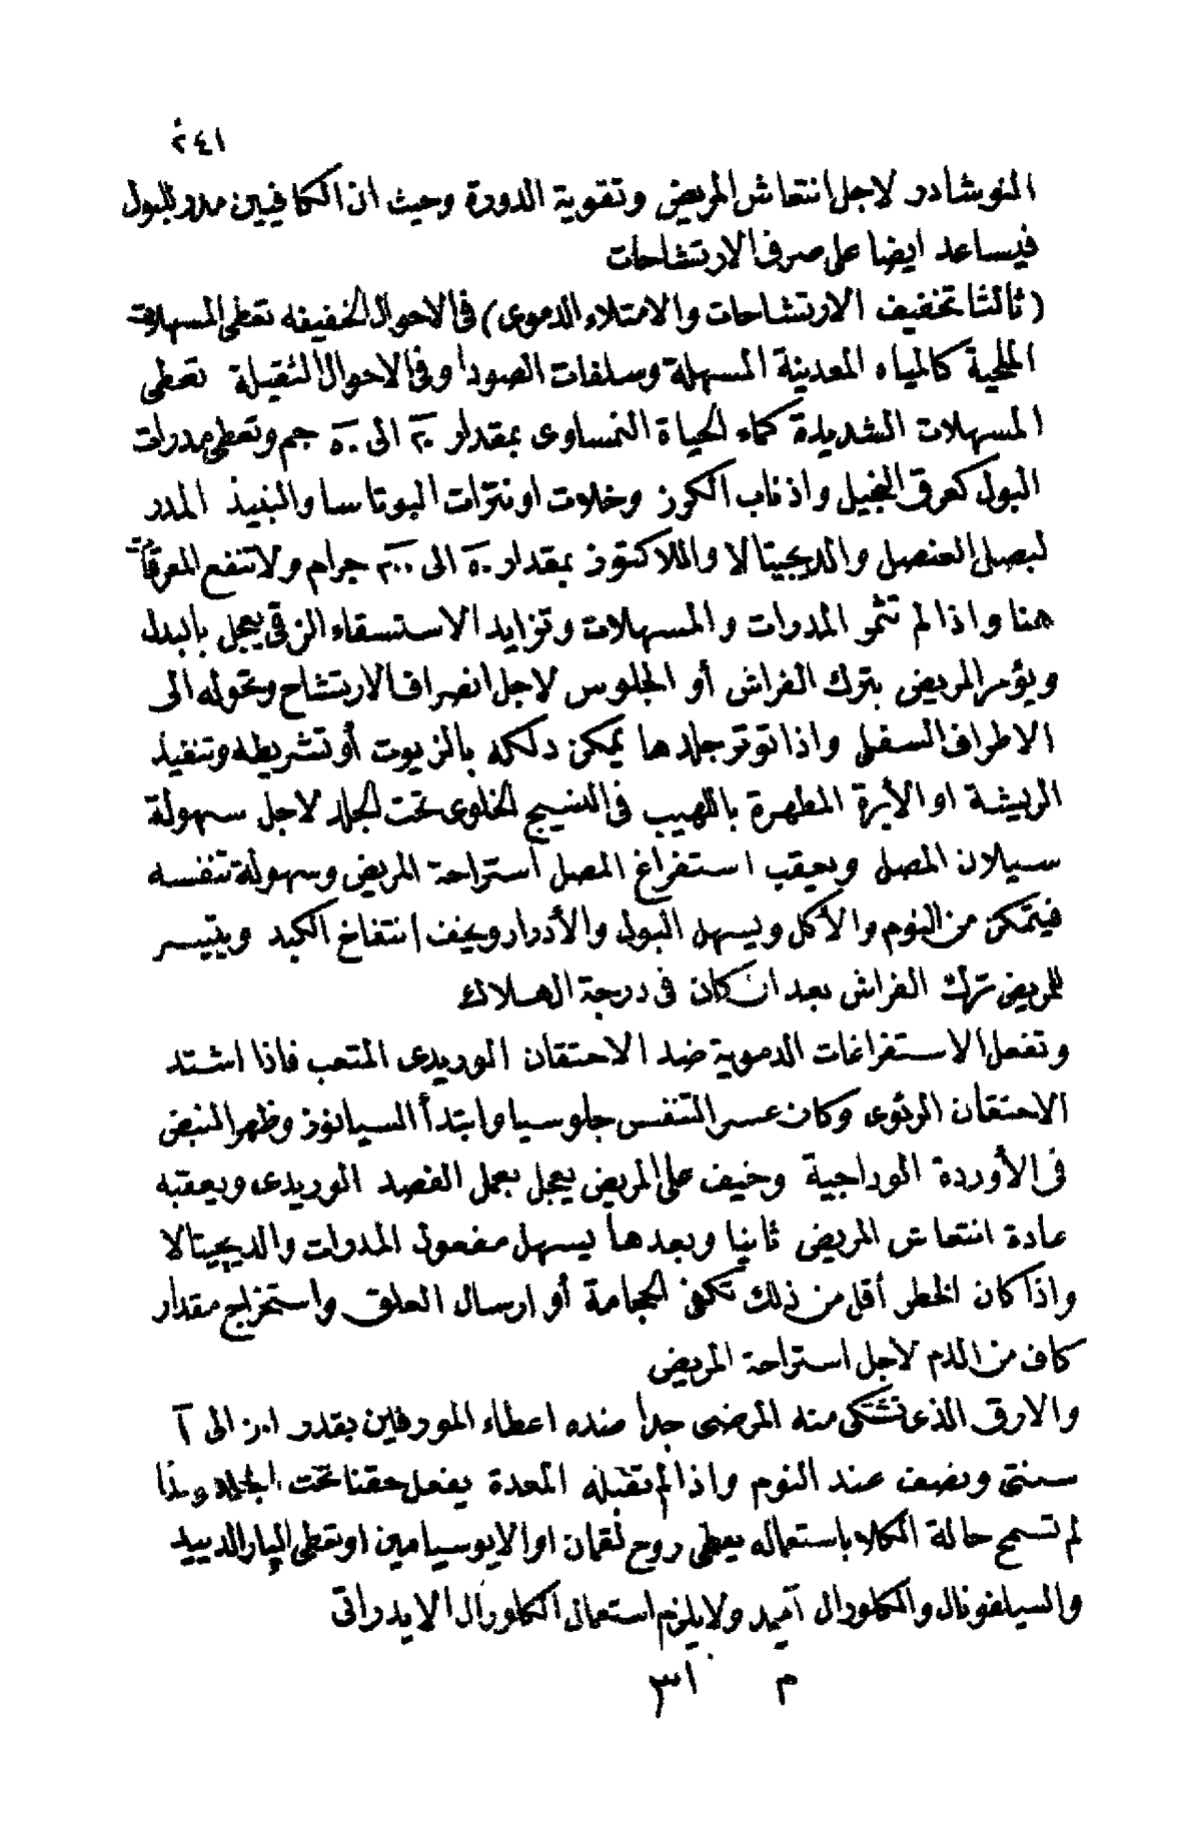 ٢٤١
النوشادر لاجل انتعاش المريض وتقوية الدورة وحيث ان الكافيين مدر للبول
فيساعد ايضا على صرف الارتشاحات
(ثالثا تخفيف الارتشاحات والامتلاء الدموى) فى الاحوال الخفيفه تعطى المسهلات
الملحية كالمياه المعدينة المسهلة وسلفات الصودا وفى الاحوال الثقيلة تعطى
المسهلات الشديدة كماء الحياة النمساوى بمقدار ٢٠ الى ٥٠ جم وتعطى مدرات
البول كعرق النجيل واذناب الكرز وخلات او نترات البوتاسا والنبيذ المدر
لبصل العنصل والديجيتالا واللاكتوز بمقدار ٥٠ الى ٢٠٠ جرام ولا تنفع المعرقات
هنا واذا لم تثمر المدرات والمسهلات وتزايد الاستسقاء الزقى يعجل بالبذل
ويؤمر المريض بترك الفراش أو الجلوس لاجل انصراف الارتشاح وتحوله الى
الاطراف السفلى واذا توتر جلدها يمكن دلكه بالزيوت أو تشريطه وتنفيذ
الريشة او الأبرة المطهرة باللهيب فى النسيج الخلوى تحت الجلد لاجل سهولة
سيلان المصل ويعقب استفراغ المصل أستراحة المريض وسهولة تنفسه
فيتمكن من النوم والأكل ويسهل البول والأدرار ويخف انتفاخ الكبد ويتيسر
للمريض ترك الفراش بعد ان كان فى درجة الهلاك
وتفعل الاستفراغات الدموية ضد الاحتقان الوريدى المتعب فاذا اشتد
الاحتقان الرئوى وكان عسر التنفس جلوسيا وابتدأ السيانوز وظهر النبض
فى الأوردة الوداجية وخيف على المريض يعجل بعمل الفصد الوريدى ويعقبه
عادة انتعاش المريض ثانيا وبعدها يسهل مفعول المدرات والديجيتالا
واذا كان الخطر أقل من ذلك تكفى الحجامة أو ارسال العلق واستخراج مقدار
كاف من الدم لاجل استراحة المريض
والارق الذى تشتكى منه المرضى جدا ضده اعطاء المورفين بقدر ٠١ر الى ٢
سنتى ونصف عند النوم واذا لم تقبله المعدة يفعل حقنا تحت الجلد واذا
لم تسمح حالة الكلا باستعماله يعطى روح لقمان او الايوسيامين او تعطى البارالدييد
والسيلفونال والكلورال آميد ولا يلزم استعمال الكلورال الايدراتى
م ٣١